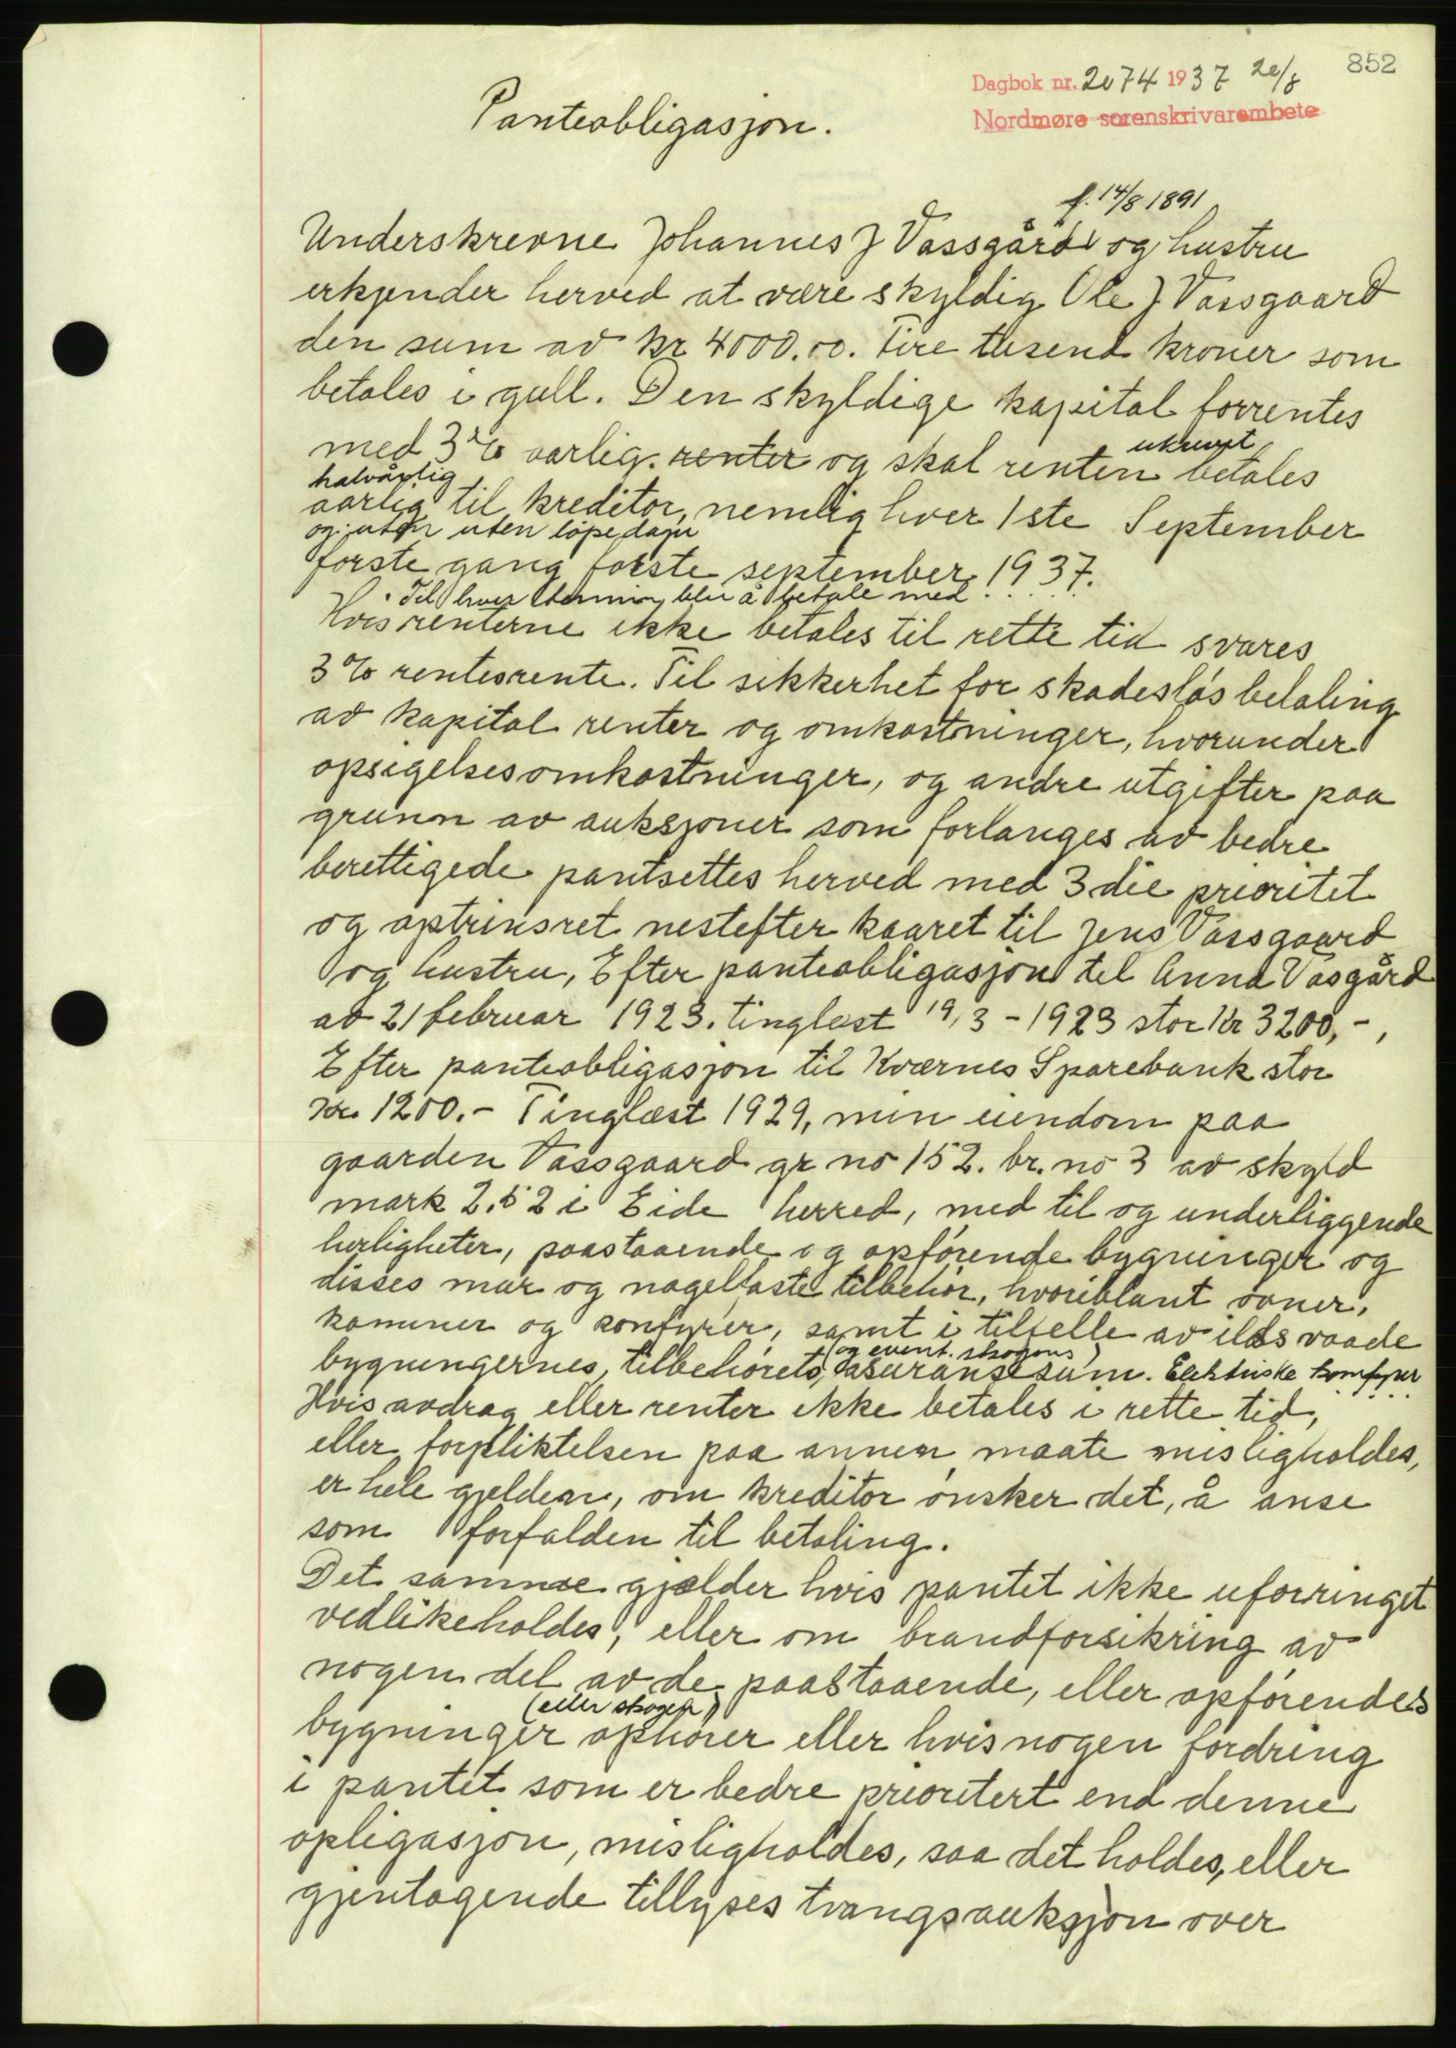 852
Dagbok nr. 2074 1937 20/8
Nordmøre sorenskrivarembete
Panteobligasjon.
f. 14/8 1891
Underskrevne Johannes J Vassgård og hustru
erkjender herved at være skyldig Ole J Vassgaard
den sum av kr 4000.00. Fire tusend kroner som
betales i gull. Den skyldige kapital forrentes
med 3% aarlig. renter og skal renten ukrevet betales
halvårlig
aarlig til kreditor, nemlig hver 1ste September
og uten løpedage
første gang første september 1937.
Til hver termin blir å betale med . . . . .
Hvis renterne ikke betales til rette tid svares
3% rentesrente. Til sikkerhet for skadesløs betaling
av kapital renter og omkostninger, hvorunder
opsigelsesomkostninger, og andre utgifter paa
grunn av auksjoner som forlanges av bedre
berettigede pantsettes herved med 3die prioritet
og optrinsret nestefter kaaret til Jens Vassgaard
og hustru, Efter panteobligasjon til Anna Vasgård
av 21 februar 1923. tinglæst 19/3 - 1923 stor Kr 3200,-,
Efter panteobligasjon til Kværnes Sparebank stor
Kr. 1200.- Tinglæst 1929, min eiendom paa
gaarden Vassgaard gr no 152. br. no 3 av skyld
mark 2.52 i Eide herred, med til og underliggende
herligheter, paastaaende og opførende bygninger og
disses mur og nagelfaste tilbehør, hvoriblant ovner,
kaminer og komfyrer, samt i tilfelle av ildsvaade
(og event. skogens)
bygningernes, tilbehørets, asuransesum. Elektriske komfyrer . . .
Hvis avdrag eller renter ikke betales i rette tid,
eller forpliktelsen paa annen maate misligholdes,
er hele gjelden, om kreditor ønsker det, å anse
som forfalden til betaling.
Det samme gjælder hvis pantet ikke uforringet
vedlikeholdes, eller om brandforsikring av
nogen del av de paastaaende, eller opførendes
(eller skogen)
bygninger ophører eller hvis nogen fordring
i pantet som er bedre prioritert end denne
opligasjon, misligholdes, saa det holdes, eller
gjentagende tillyses tvangsauksjon over